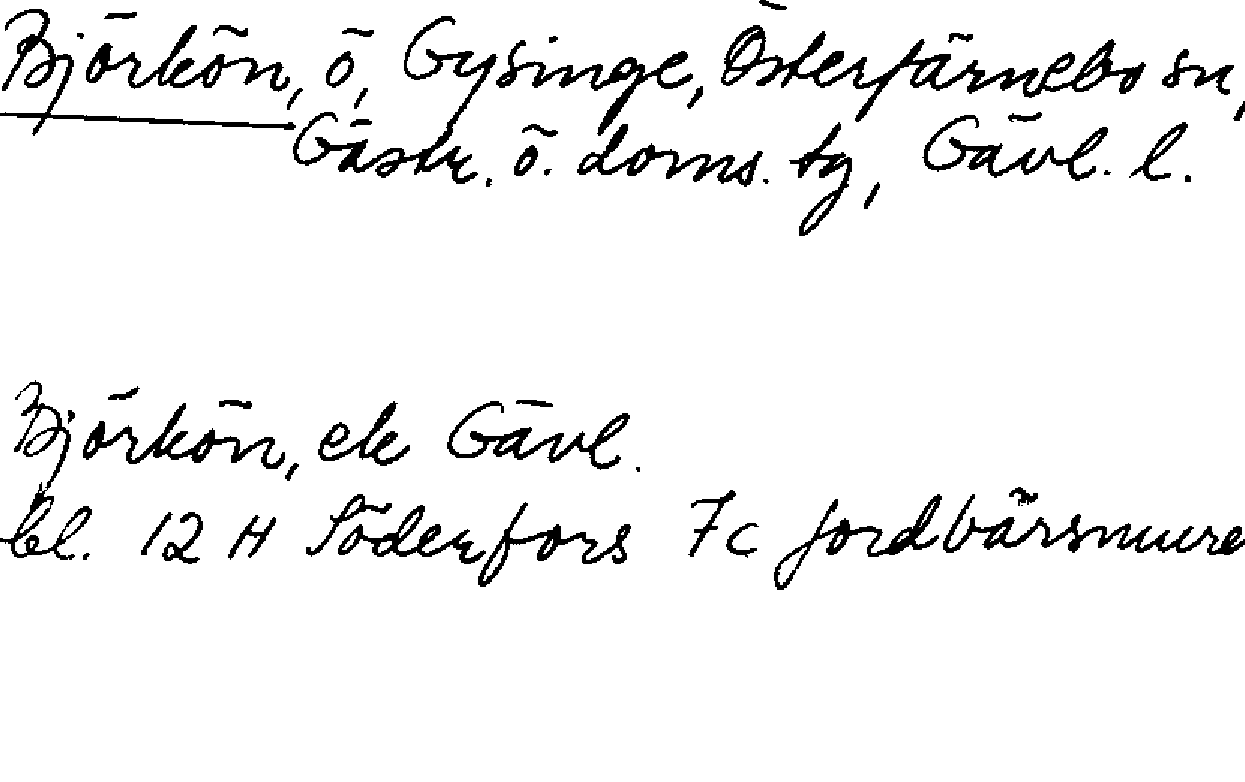 Björkön, ö, Gysinge, Österfärnebo sn,
Gästr. ö. doms. tg, Gävl. l.
Björkön, ek Gävl.
bl. 12 H Söderfors 7c Jordbärsmure